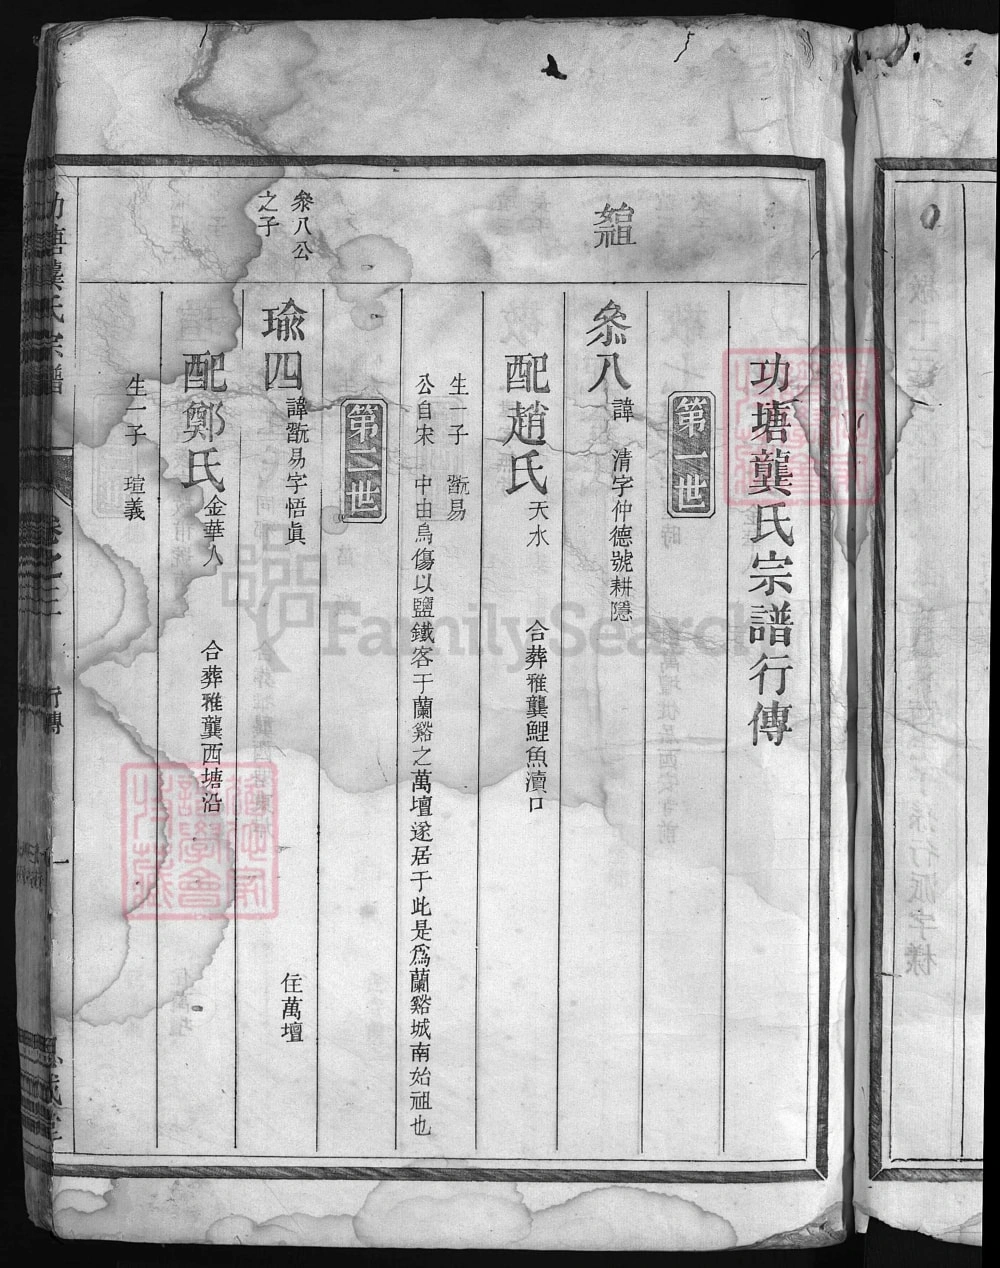 功塘龔氏宗譜行傳
第一世
始祖
叅八 諱 清字仲德號耕隱
配趙氏 天水 合葬雅龔鯉魚瀆口
生一子 翫易
公自宋 中由烏傷以鹽鐵客于蘭谿之萬壇遂居于此是爲蘭谿城南始祖也
第二世
叅八公
之子
瑜四 諱翫易字悟眞 住萬壇
配鄭氏 金華人 合葬雅龔西塘沿
生一子 瑄義
功塘龔氏宗譜 卷之二 行傳 一
FamilySearch